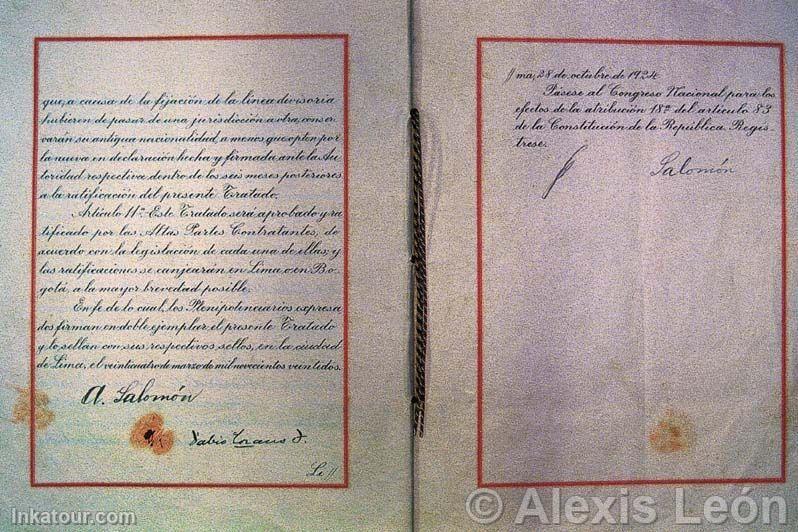 que, a causa de la fijación de la línea divisoria
hubieren de pasar de una jurisdicción a otra, conser
varán su antigua nacionalidad, a menos que opten por
la nueva en declaración hecha y firmada ante la Au
toridad respectiva, dentro de los seis meses posteriores
a la ratificación del presente Tratado.
Artículo 11º Este Tratado será aprobado y ra
tificado por las Altas Partes Contratantes, de
acuerdo con la legislación de cada una de ellas; y
las ratificaciones se canjearán en Lima o en Bo-
gotá, a la mayor brevedad posible.
En fe de lo cual, los Plenipotenciarios expresa
dos firman en doble ejemplar el presente Tratado
y lo sellan con sus respectivos sellos, en la ciudad
de Lima, el veinticuatro de marzo de mil novecientos veintidos.
A. Salomón
Fabio Lozano T.
Li //
// ma, 28 de octubre de 1924
Pásese al Congreso Nacional para los
efectos de la atribución 18ª del artículo 83
de la Constitución de la República. Regís-
trese.
Salomón
Inkatour.com
© Alexis León